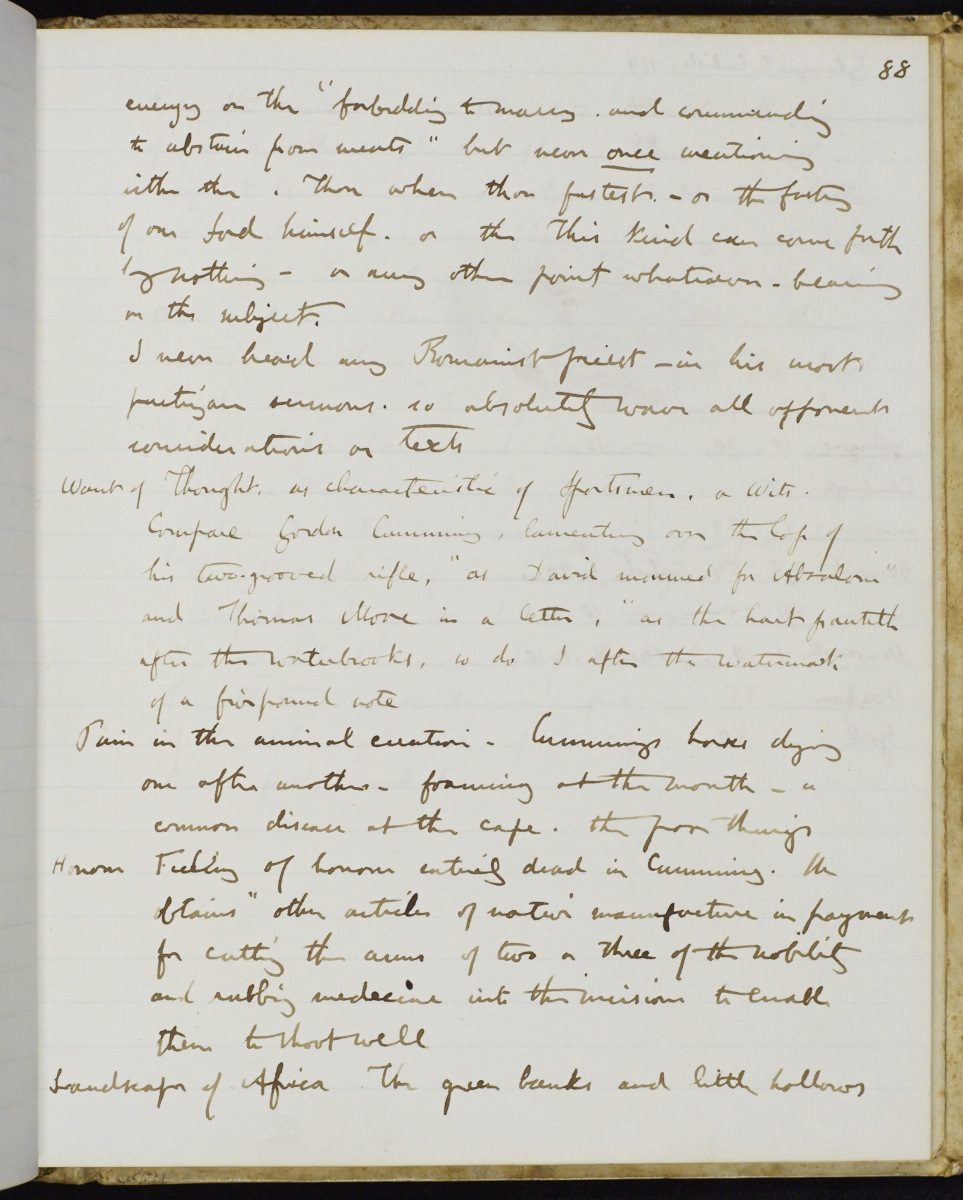 88
energy on the "forbidding to marry. and commanding
to abstain from meats" but never once mentioning
either the. Thou when thou fastest. - or the fasting
of our Lord himself. or the This kind can come forth
by nothing - or any other point whatsoever - bearing
on the subject.
I never heard any Romanist priest - in his most
partizan sermons. so absolutely waive all opponents
considerations or texts
Want of Thought. as characteristic of Sportsmen. or Wits.
Compare Gordon Cumming, lamenting over the loss of
his two-grooved rifle, "as David mourned for Absalom"
and Thomas Moore in a letter, "as the hart panteth
after the waterbrooks, so do I after the watermark
of a five pound note
Pain in the animal creation - Cummings horses dying
one after another - foaming at the mouth - a
common disease at the cape. the poor things
Honour Feeling of honour entirely dead in Cumming. He
obtains "other articles of native manufacture in payment
for cutting the arms of two or three of the nobility
and rubbing medecine into the incisions to enable
them to shoot well
Landscape of Africa The green banks and little hollows